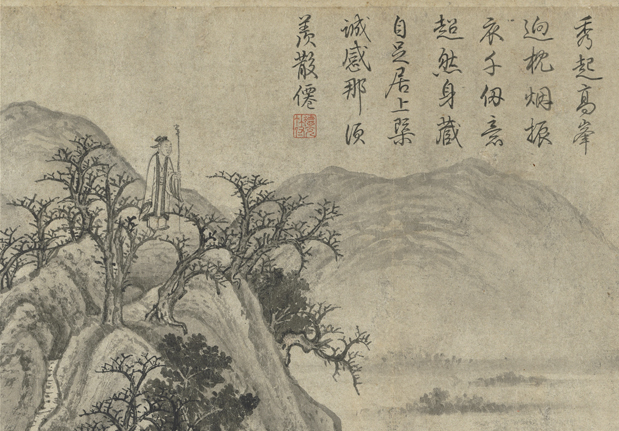 秀起高峯
迥枕烟振
衣千仞意
超然身藏
自足居上
誠感那須
羨散僊